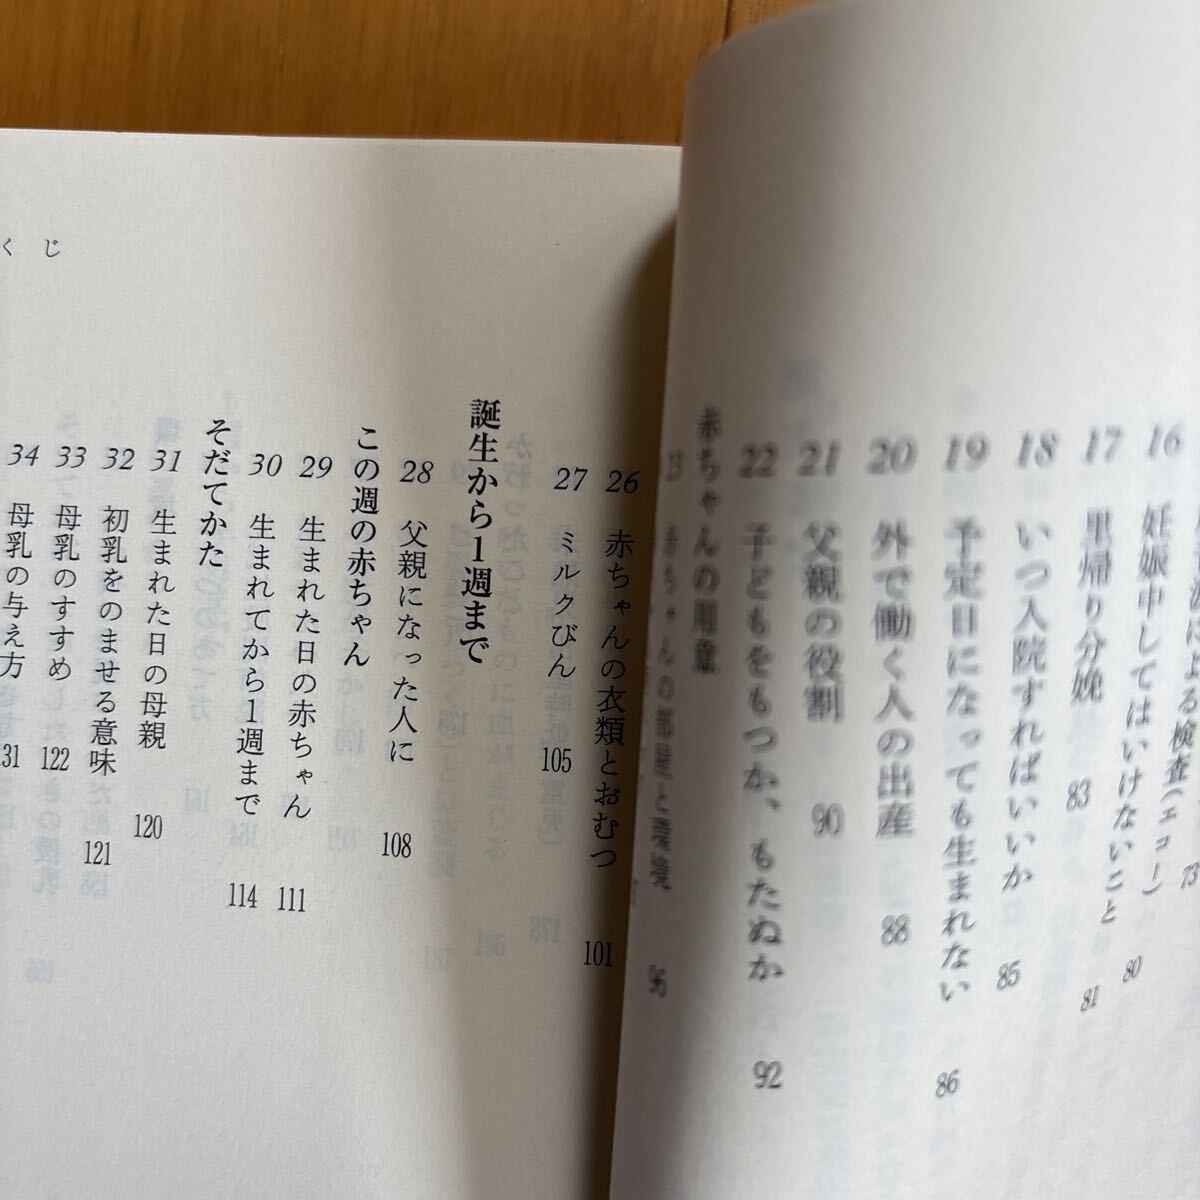 波による検査(エコー) 73
16 妊娠中してはいけないこと 80
17 里帰り分娩 81
83
18 いつ入院すればいいか 85
19 予定日になっても生まれない 86
20 外で働く人の出産 88
21 父親の役割 90
22 子どもをもつか、もたぬか 92
赤ちゃんの用意
赤ちゃんの部屋と環境 96
くじ
26 赤ちゃんの衣類とおむつ 101
27 ミルクびん 105
誕生から1週まで
28 父親になった人に 108
この週の赤ちゃん
29 生まれた日の赤ちゃん 111
30 生まれてから1週まで 114
そだてかた
31 生まれた日の母親 120
32 初乳をのませる意味 121
33 母乳のすすめ 122
34 母乳の与え方 131